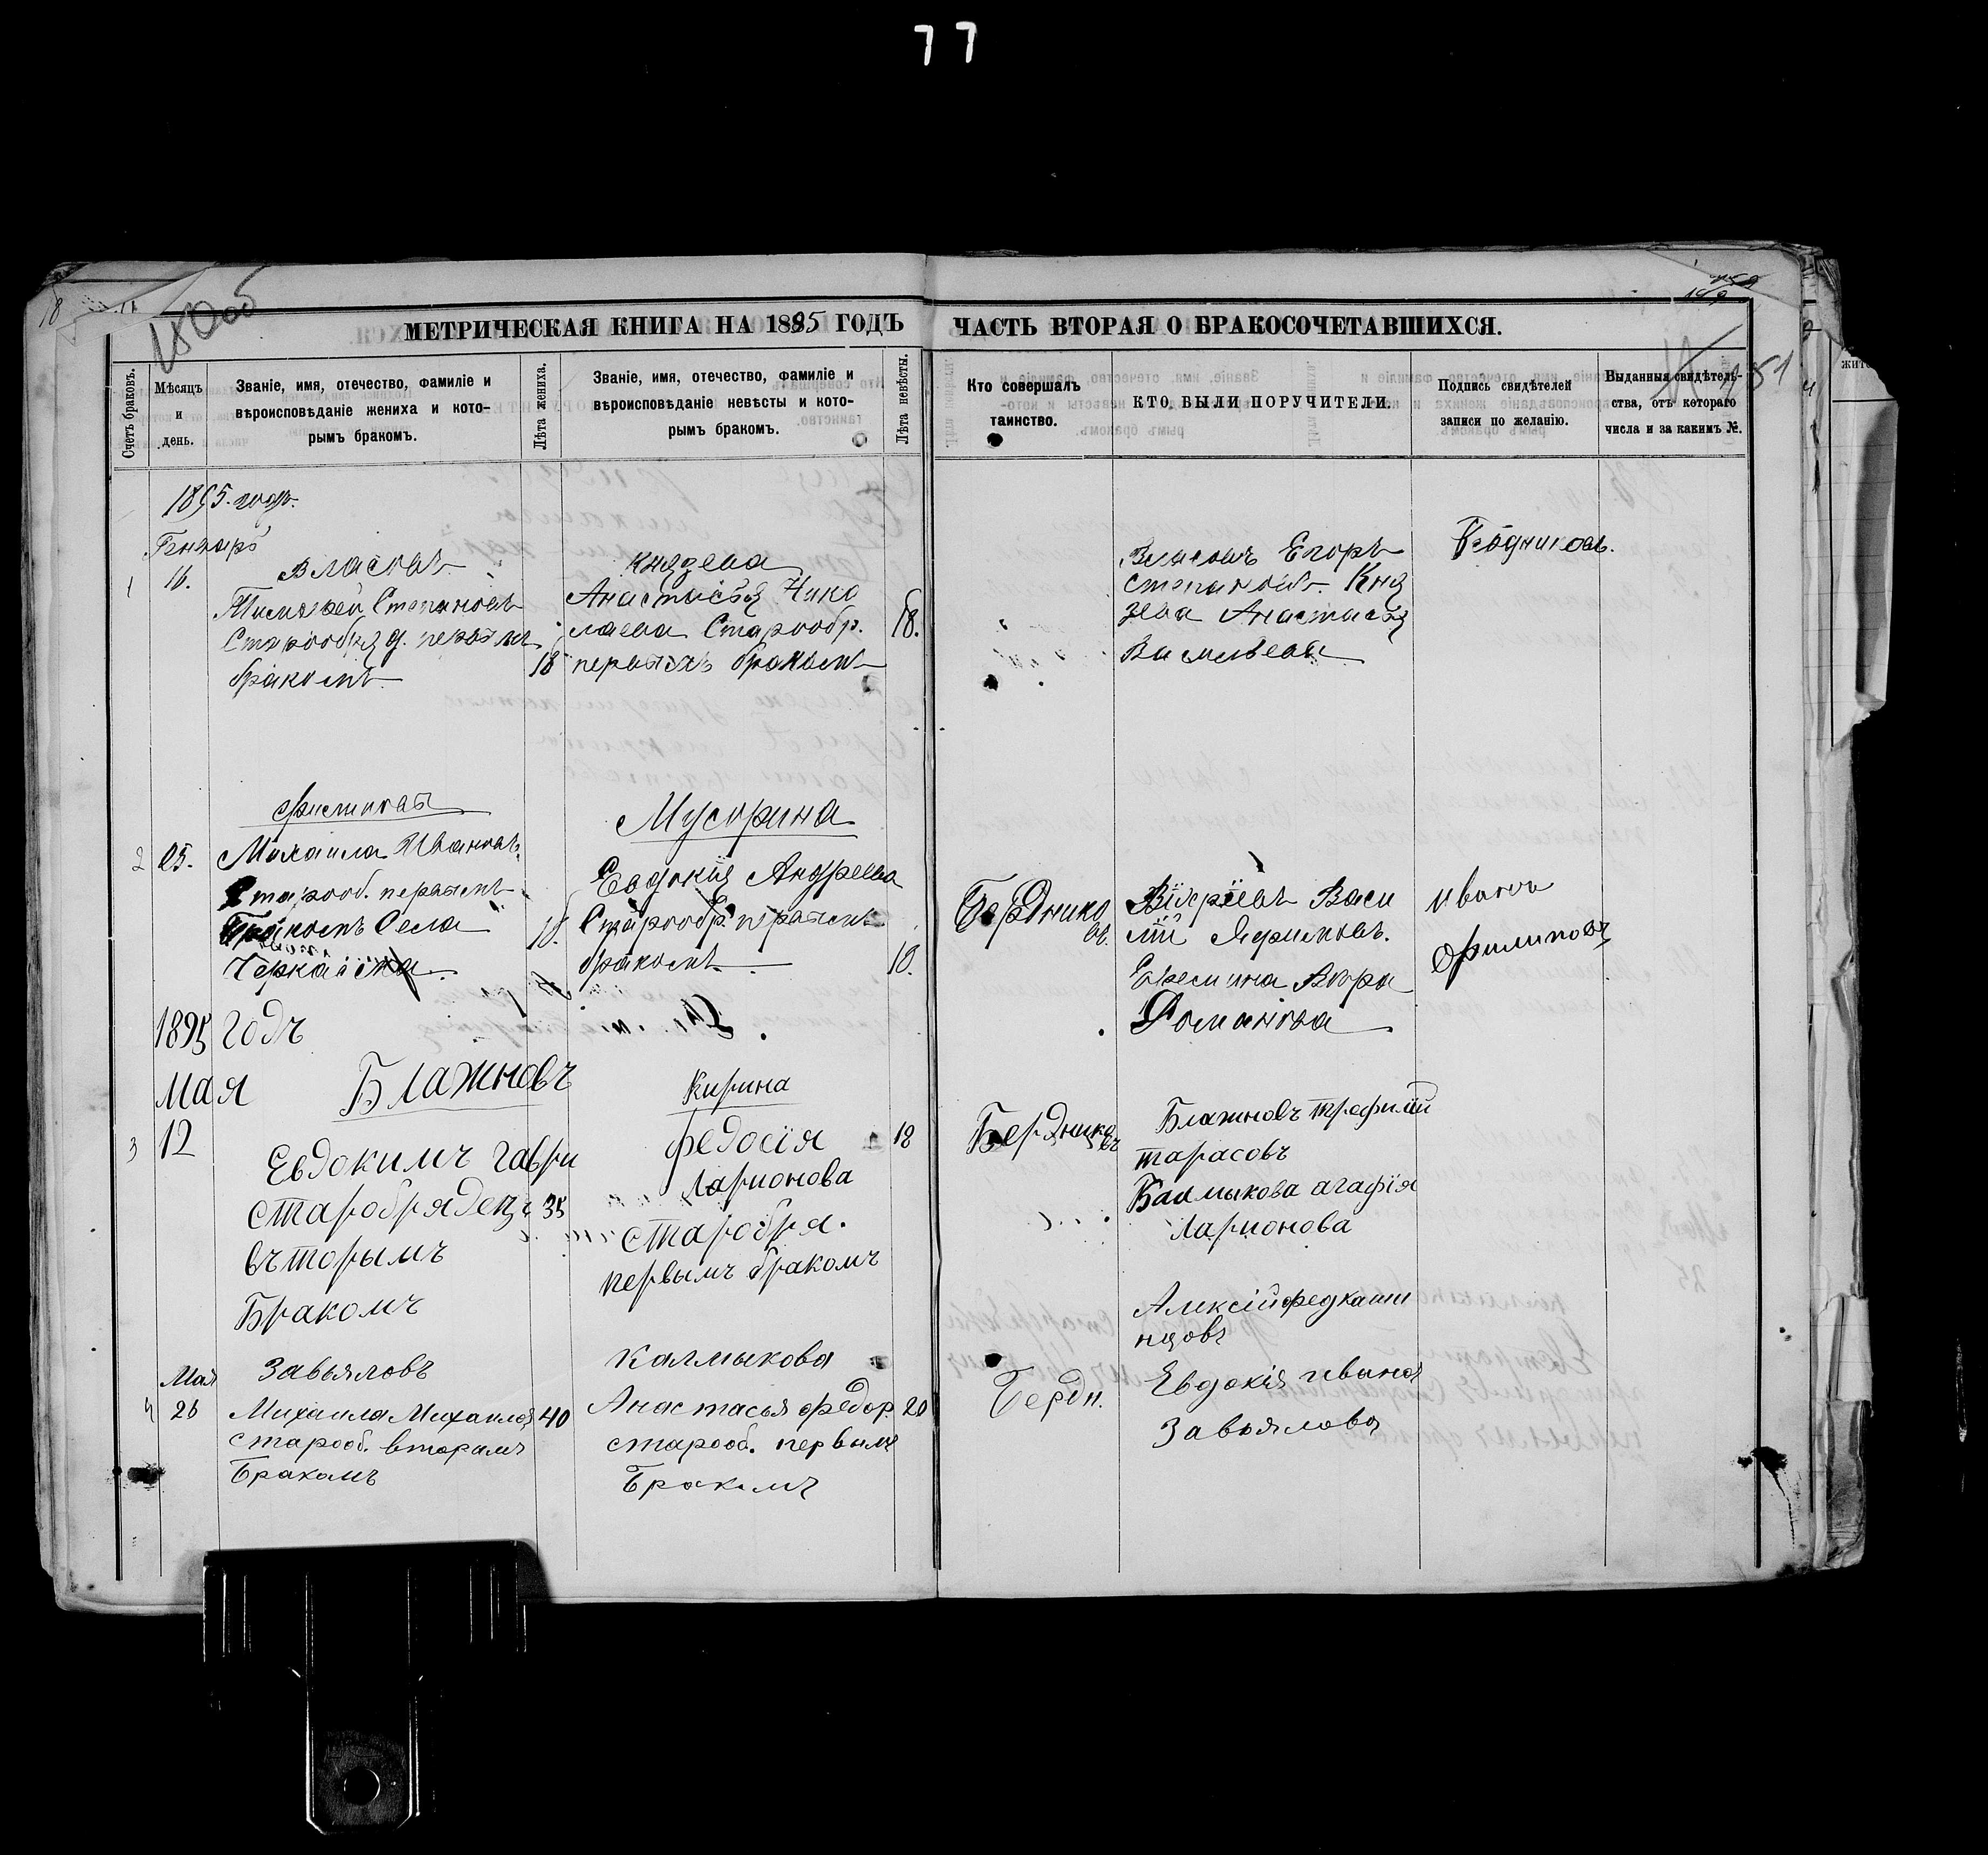 77
180об
МЕТРИЧЕСКАЯ КНИГА НА 1895 ГОДЪ
ЧАСТЬ ВТОРАЯ О БРАКОСОЧЕТАВШИХСЯ.
Счетъ браковъ.
Мѣсяцъ
и
день.
Званіе, имя, отечество, фамиліе и
вѣроисповѣданіе жениха и кото-
рымъ бракомъ.
Лѣта жениха.
Званіе, имя, отечество, фамиліе и
вѣроисповѣданіе невѣсты и кото-
рымъ бракомъ.
Лѣта невѣсты.
Кто совершалъ
таинство.
КТО БЫЛИ ПОРУЧИТЕЛИ.
Подпись свидѣтелей
записи по желанію.
Выданныя свидѣтель-
ства, отъ котораго
числа и за какимъ №.
1895. годъ.
Генварь
1
16.
Власовъ
Степановъ
Старообряд. первымъ
бракомъ
18
Князева
Анастасья Нико
лаева Старообр.
первымъ бракомъ
18.
Власовъ Егоръ
Степановъ. Кня
зева Анастасья
Васильева
2
25.
Филиповъ
Михаила Ивановъ.
Старооб. первымъ
Бракомъ Села
Черкаска
18.
Мусорина
Евдокия Андреева
Старообр. первымъ
бракомъ
18.
Берднико
въ.
Васи
лий Яфимовъ.
Романова
иванъ
Филиповъ
1895 годъ
мая
3
12
Блажновъ
Евдокимъ гаври
старобрядецъ
въторымъ
Бракомъ
35
Кирина
федосїя
Ларионова
старобря.
первымъ бракомъ
18
Бердников
въ
Блажновъ трефилий
тарасовъ
Калмыкова агафїя
Ларионова
Мая
4
26
Завьяловъ
Михаила Михаилов
старооб. вторамъ
Бракамъ
40
Калмыкова
Анастасья федор.
старооб. первымъ
Бракомъ
20
Бердн.
Алексій
нцовъ
Евдокія ивана
Завьялова